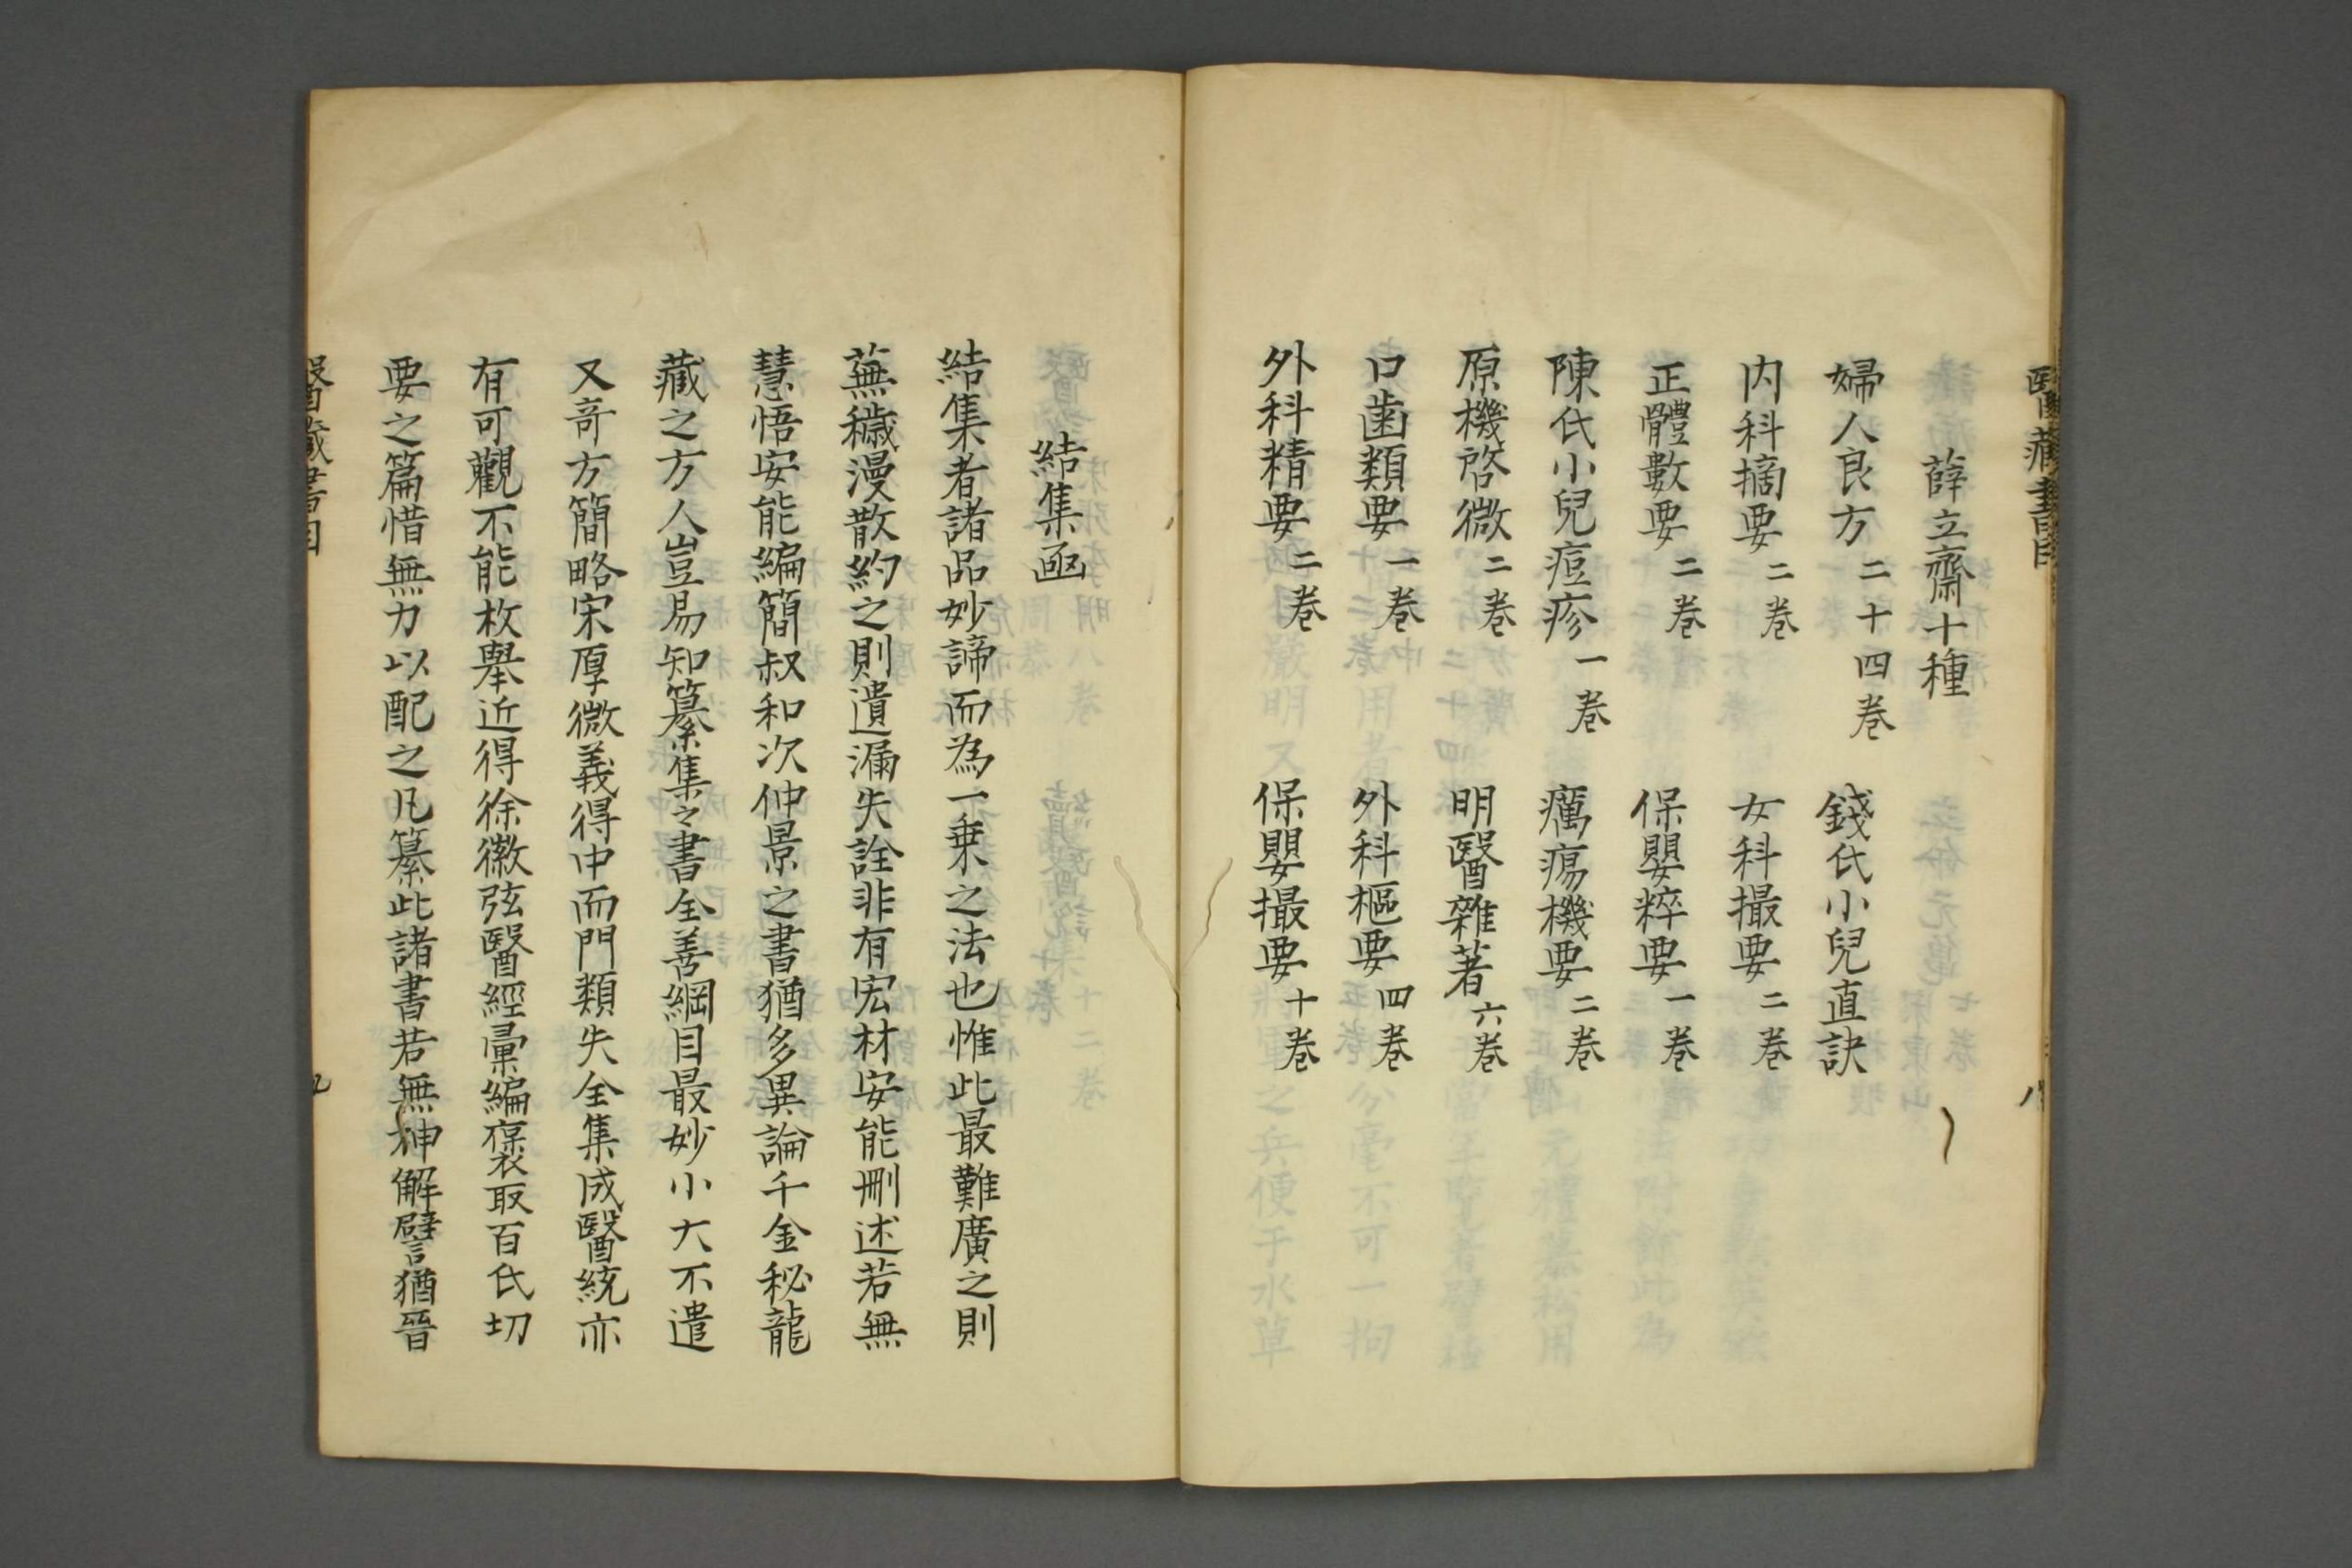 醫藏書目
八
薛立齋十種
婦人良方 二十四卷 錢氏小兒直訣
内科摘要 二卷 女科撮要 二卷
正體數要 二卷 保嬰粹要 一卷
陳氏小兒痘疹 一卷 癘瘍機要 二卷
原機啓微 二卷 明醫雜著 六卷
口齒類要 一卷 外科樞要 四卷
外科精要 二卷 保嬰撮要 十卷
結集函
結集者諸品妙諦而為一乗之法也惟此最難廣之則
蕪穢漫散約之則遺漏失詮非有宏材安能刪述若無
慧悟安能編簡叔和次仲景之書猶多異論千金秘龍
藏之方人豈易知纂集之書全善綱目最妙小大不遣
又奇方簡略宋厚微義得中而門類失全集成醫統亦
有可觀不能枚舉近得徐徽弦醫經彙編裒取百氏切
要之篇惜無力以配之凡纂此諸書若無神解譬猶晉
醫藏書目
九